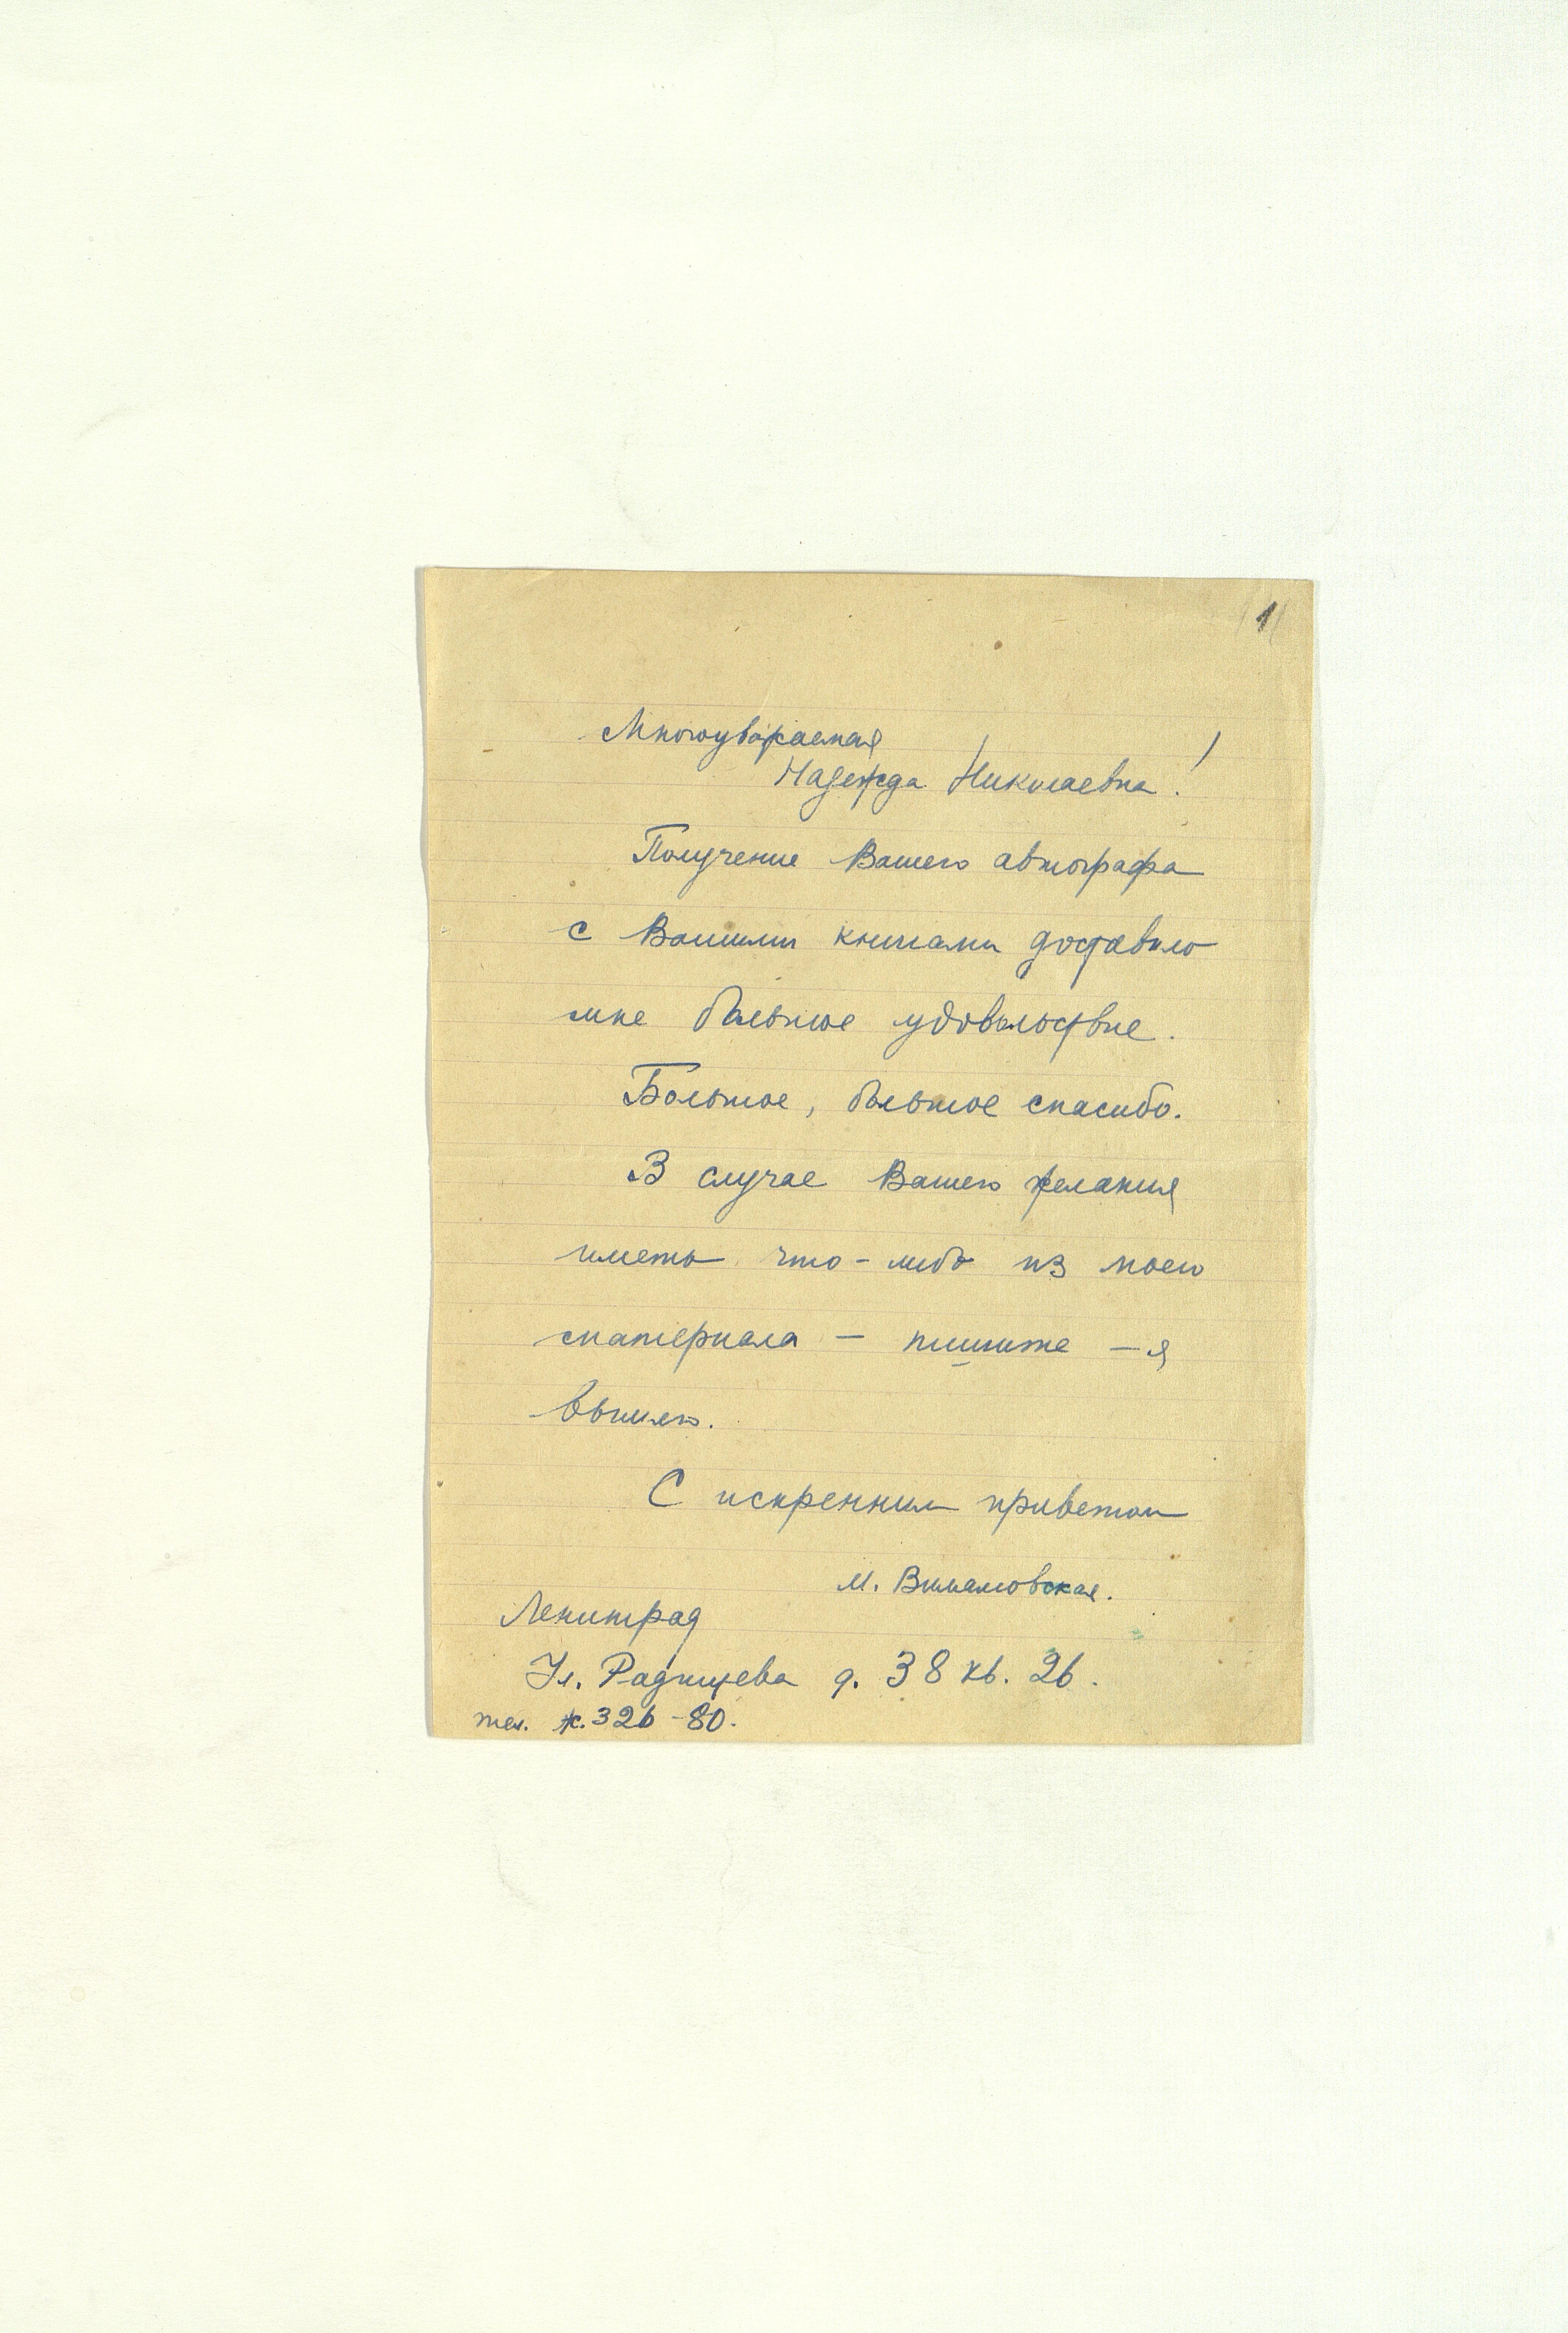 1
Многоуважаемая
Надежда Николаевна!
Получение Вашего автографа
с Вашими книгами доставило
мне большое удовольствие.
Большое, большое спасибо.
В случае Вашего желания
иметь что-либо из моего
материала — пишите — я
вышлю.
С искренним приветом
М.
Ленинград
Ул. Радищева д. 38 кв. 26.
тел. ж. 326-80.